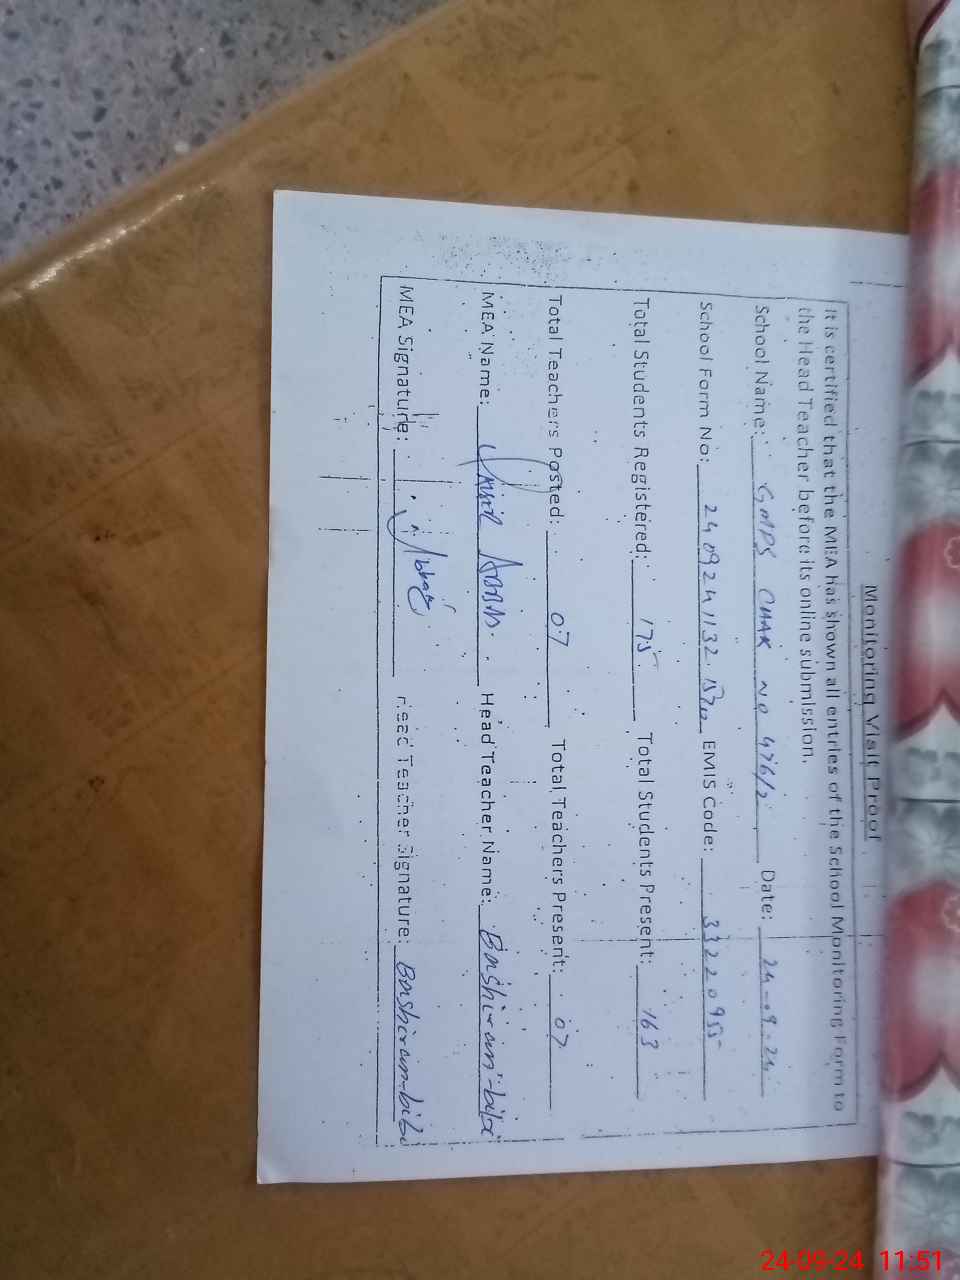 Monitoring Visit Proof
It is certified that the MEA has shown all entries of the School Monitoring Form to
the Head Teacher before its online submission.
School Name: GMPS CHAK NO 476/2 Date: 24-09-24
School Form No: 2409241132 EMIS Code: 33220955
Total Students Registered: 175 Total Students Present: 163
Total Teachers Posted: 07 Total Teachers Present: 07
MEA Name: Abbas Head Teacher Name: Bashiran-bibi
MEA Signature: Abbas Head Teacher Signature: Bashiran-bibi
24-09-24 11:51